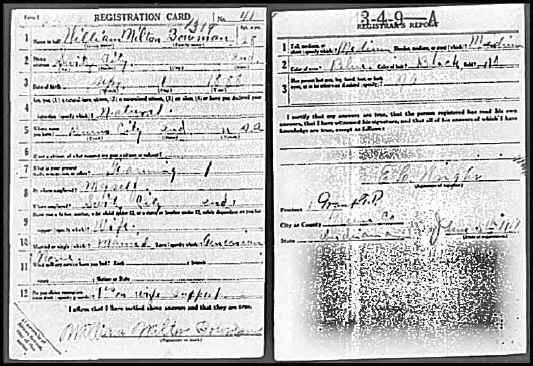 Form 1 REGISTRATION CARD No. 41
1 Name in full William Milton Bowman Age, in yrs. 28
2 Home address Switz City Ind
3 Date of birth
4 Are you (1) a natural born citizen, (2) a naturalized citizen, (3) an alien, (4) or have you declared your
intention (specify which)? Natural
5 Where were you born? City Ind
6 If not a citizen, of what country are you a citizen or subject?
7 What is your present trade, occupation, or office? Farming
8 By whom employed? Myself
Where employed? Switz City Ind
9 Have you a father, mother, wife, child under 12, or a sister or brother under 12, solely dependent on you for
support (specify which)? Wife
10 Married or single (which)? Married Race (specify which)? Caucasian
11 What military service have you had? Rank branch
years Nation or State
12 Do you claim exemption from draft (specify grounds)? wife support
I affirm that I have verified above answers and that they are true.
William Milton Bowman
(Signature or mark)
3-4-9-A
REGISTRAR'S REPORT
1 Tall, medium, or short (specify which)? Medium Slender, medium, or stout (which)? Medium
2 Color of eyes? Blue Color of hair? Black Bald? No
3 Has person lost arm, leg, hand, foot, or both eyes, or is he otherwise disabled (specify)? No
I certify that my answers are true, that the person registered has read his own
answers, that I have witnessed his signature, and that all of his answers of which I have
knowledge are true, except as follows:
(Signature of registrar)
Precinct 1 Grant T.P.
City or County Greene Co
State Indiana June
(Date of registration)